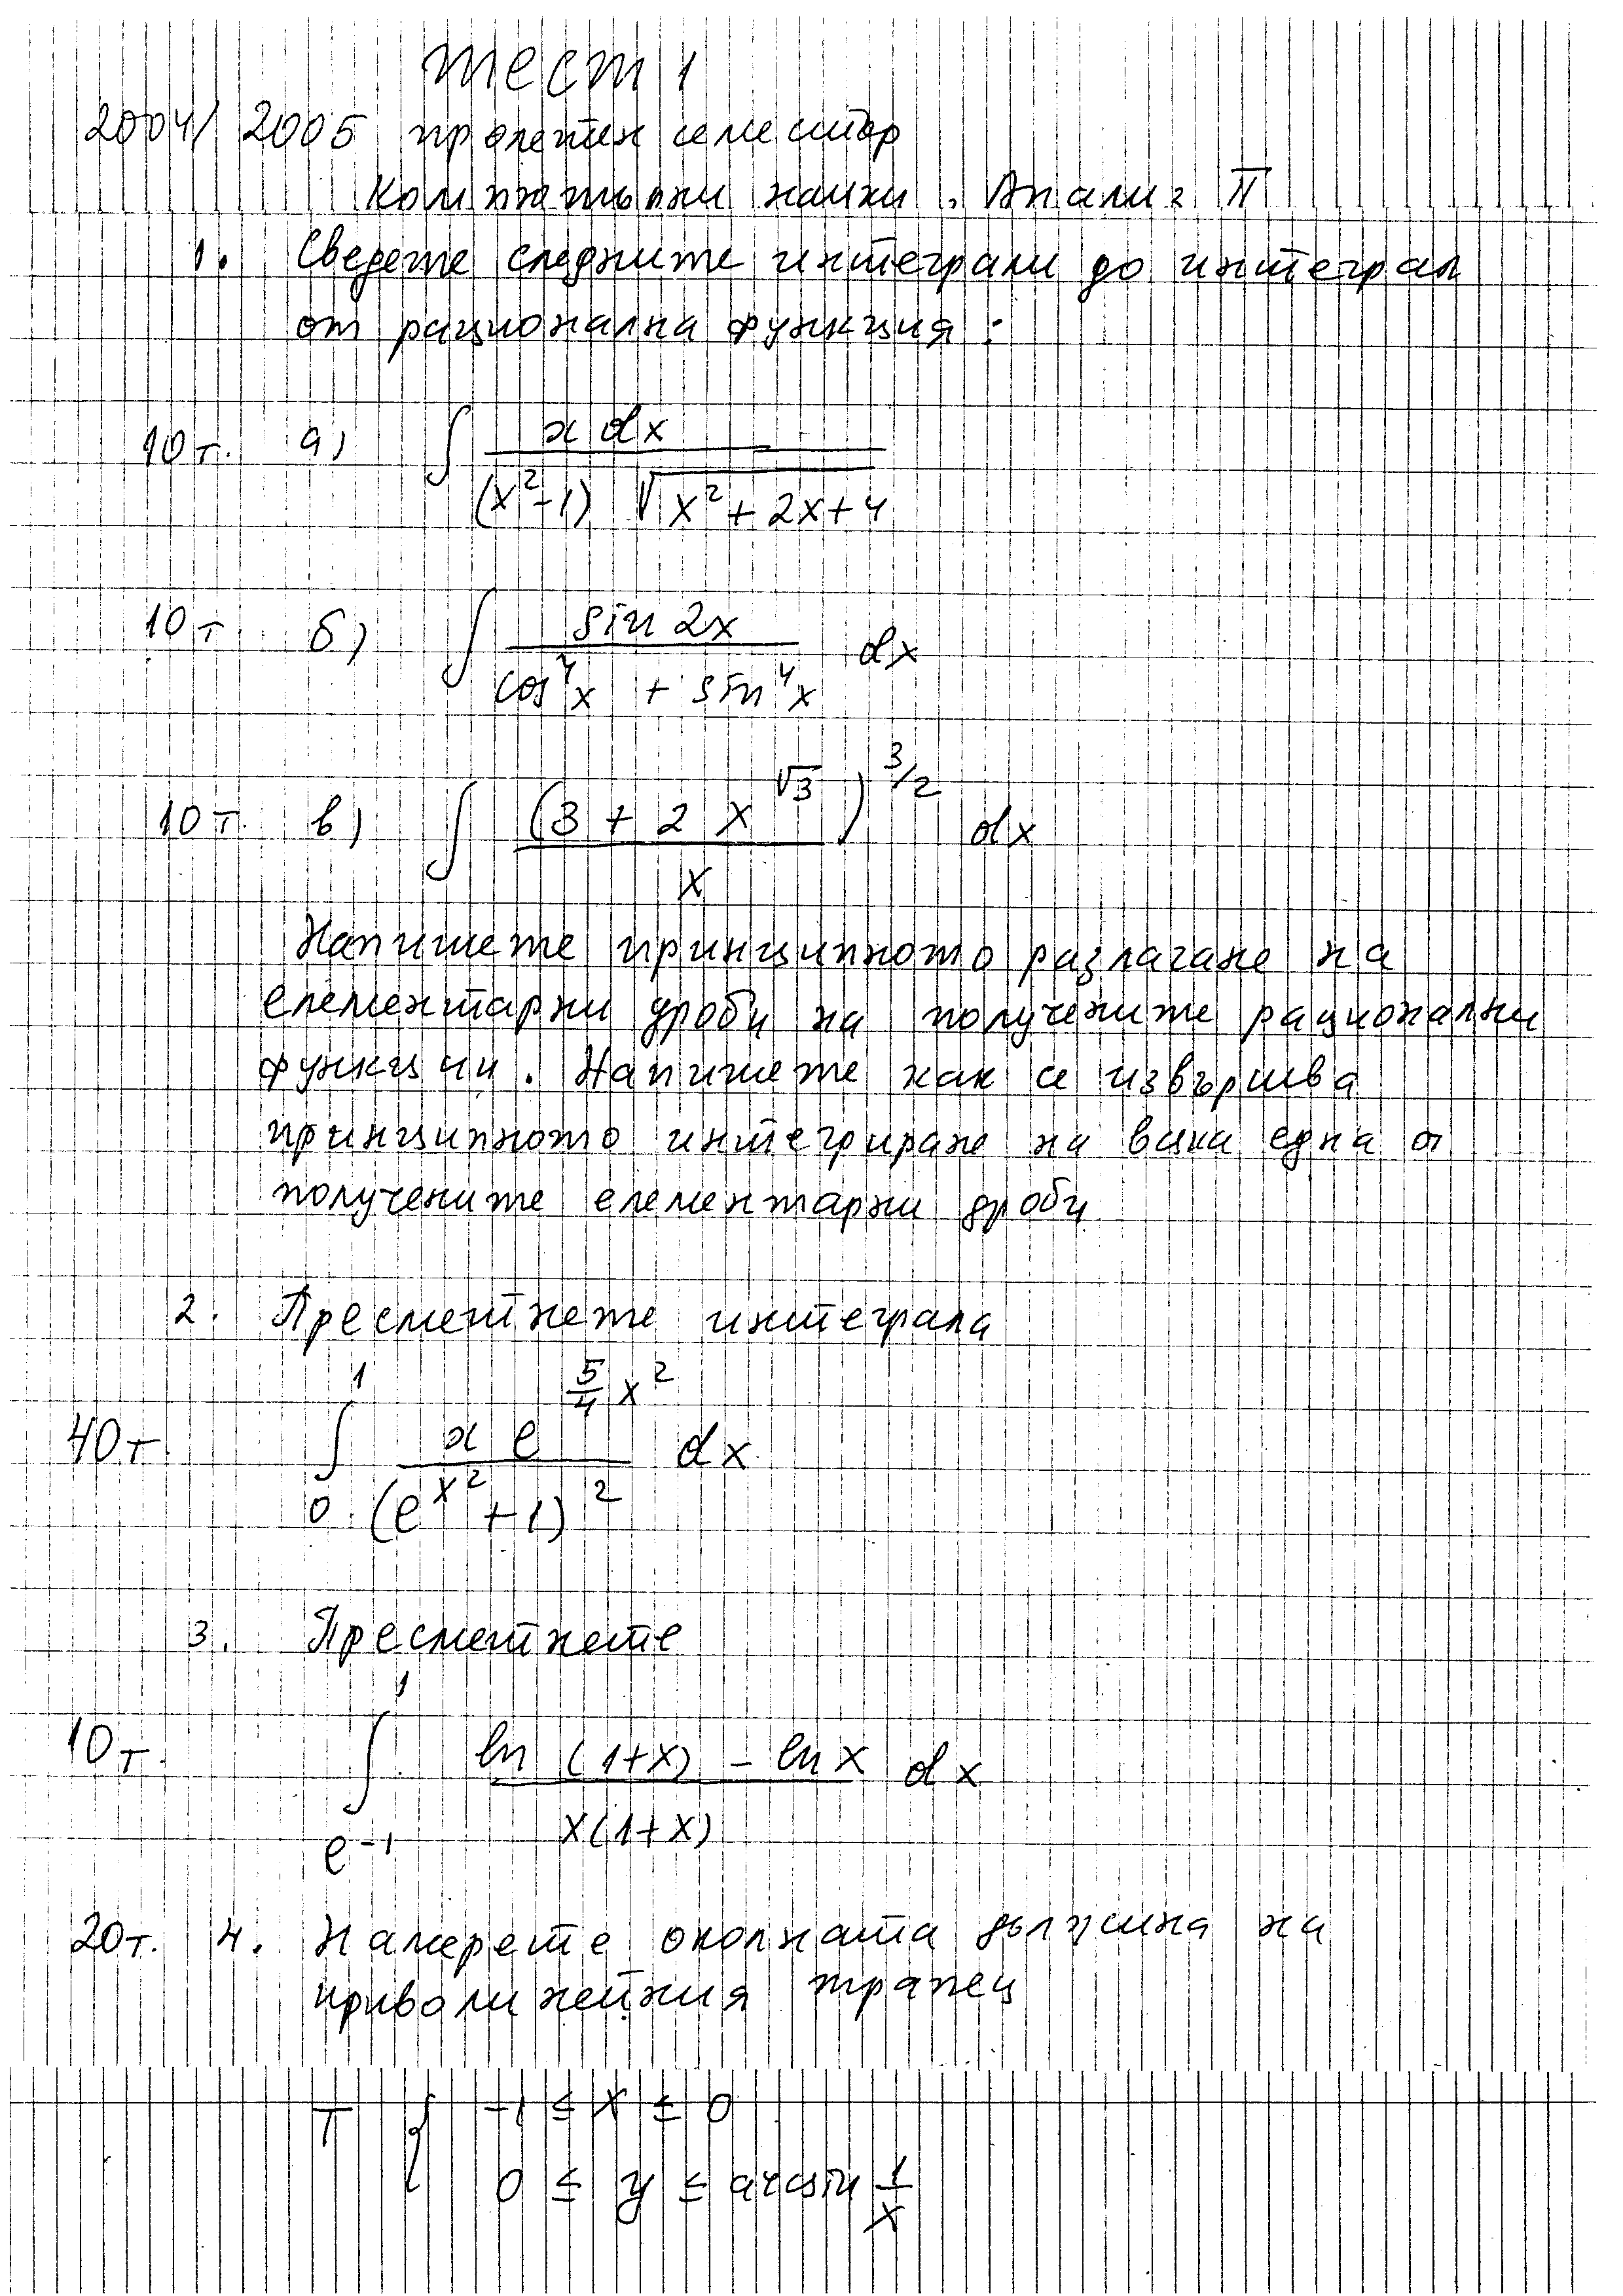 Тест 1
2004/2005 пролетен семестър
Компютърни науки. Анализ II
1. Сведете следните интеграли до интеграл
от рационална функция:
10т. а) ∫ x dx / ((x²-1) √(x²+2x+4))
10т. б) ∫ sin 2x / (cos⁴x + sin⁴x) dx
10т. в) ∫ (3 + 2x^√3)^3/2 / x dx
Напишете принципното разлагане на
елементарни дроби на получените рационални
функции. Напишете как се извършва
принципното интегриране на всяка една от
получените елементарни дроби
2. Пресметнете интеграла
40т. ∫₀¹ x e^(5/4 x²) / (e^x² + 1)² dx
3. Пресметнете
10т. ∫_{e⁻¹}^1 ln (1+x) - ln x / x(1+x) dx
20т. 4. Намерете околната дължина на
криволинейния трапец
T { -1 ≤ x ≤ 0
0 ≤ y ≤ arcsin 1/x